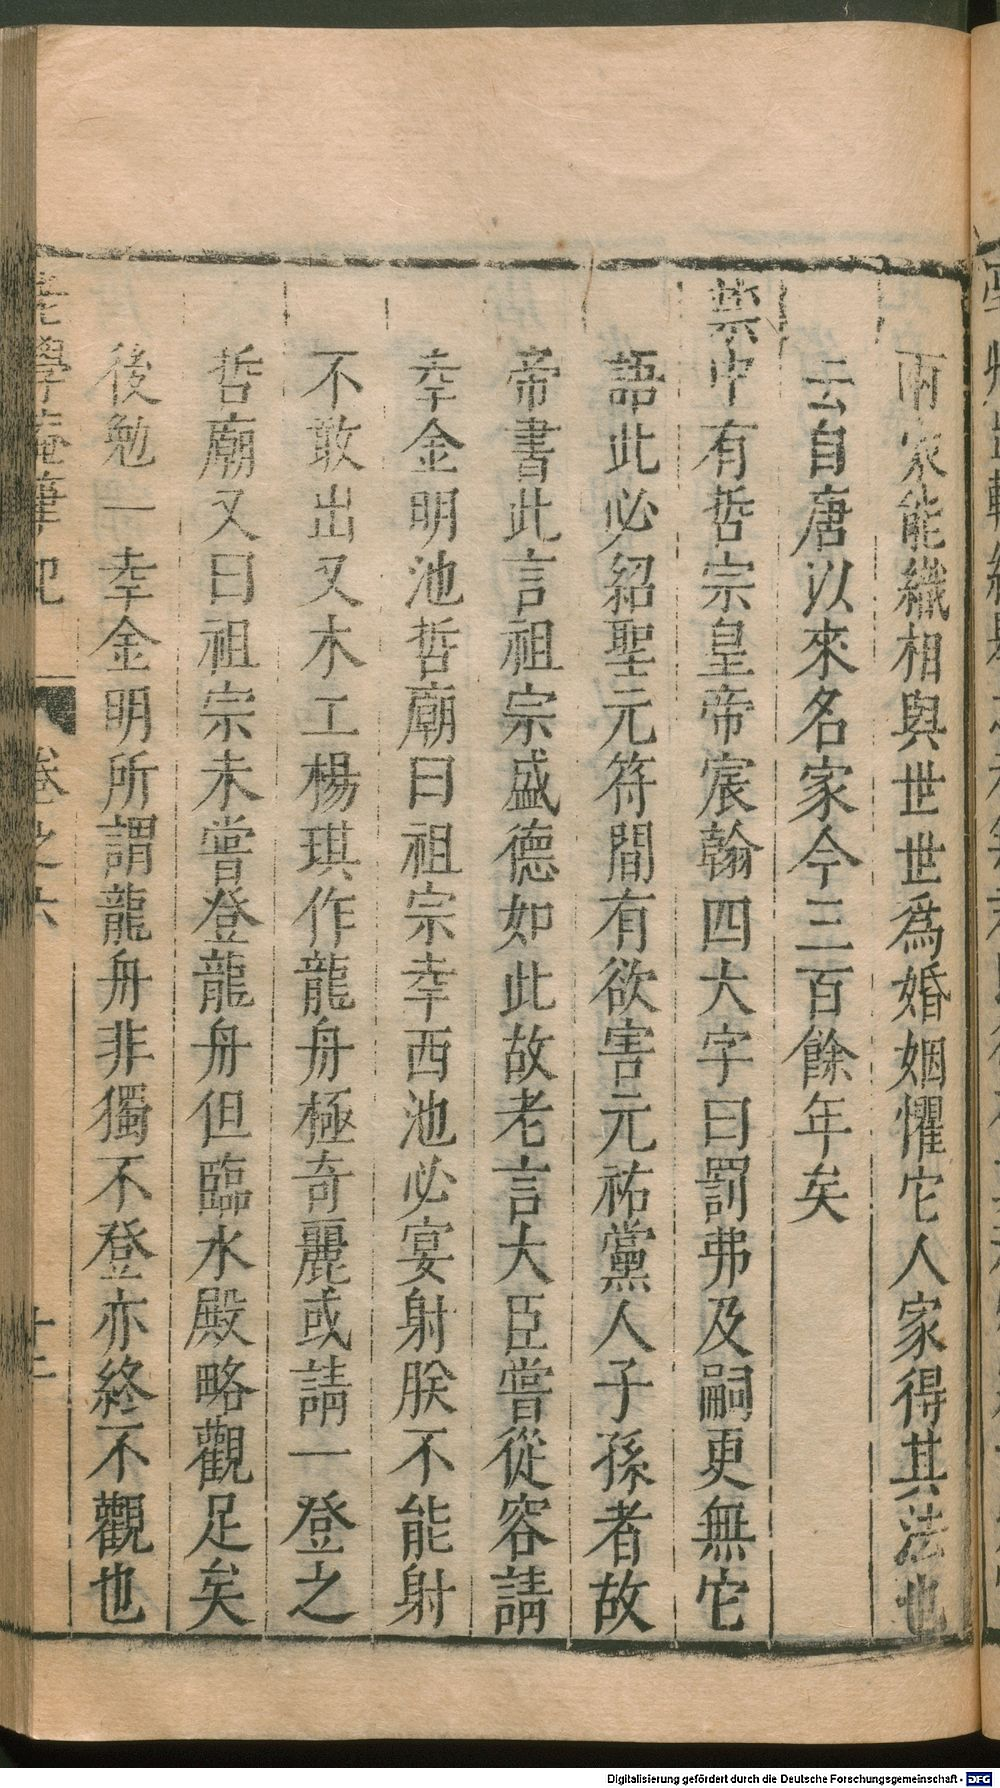 兩家能織相與世世爲婚姻懼它人家得其法也
云自唐以來名家今三百餘年矣
禁中有哲宗皇帝宸翰四大字曰罰弗及嗣更無它
語此必紹聖元符間有欲害元祐黨人子孫者故
帝書此言祖宗盛德如此故老言大臣嘗從容請
幸金明池哲廟曰祖宗幸西池必宴射朕不能射
不敢出又木工楊琪作龍舟極奇麗或請一登之
哲廟又曰祖宗未嘗登龍舟但臨水殿略觀足矣
後勉一幸金明所謂龍舟非獨不登亦終不觀也
老學庵筆記 卷之六
Digitalisierung gefördert durch die Deutsche Forschungsgemeinschaft - DFG